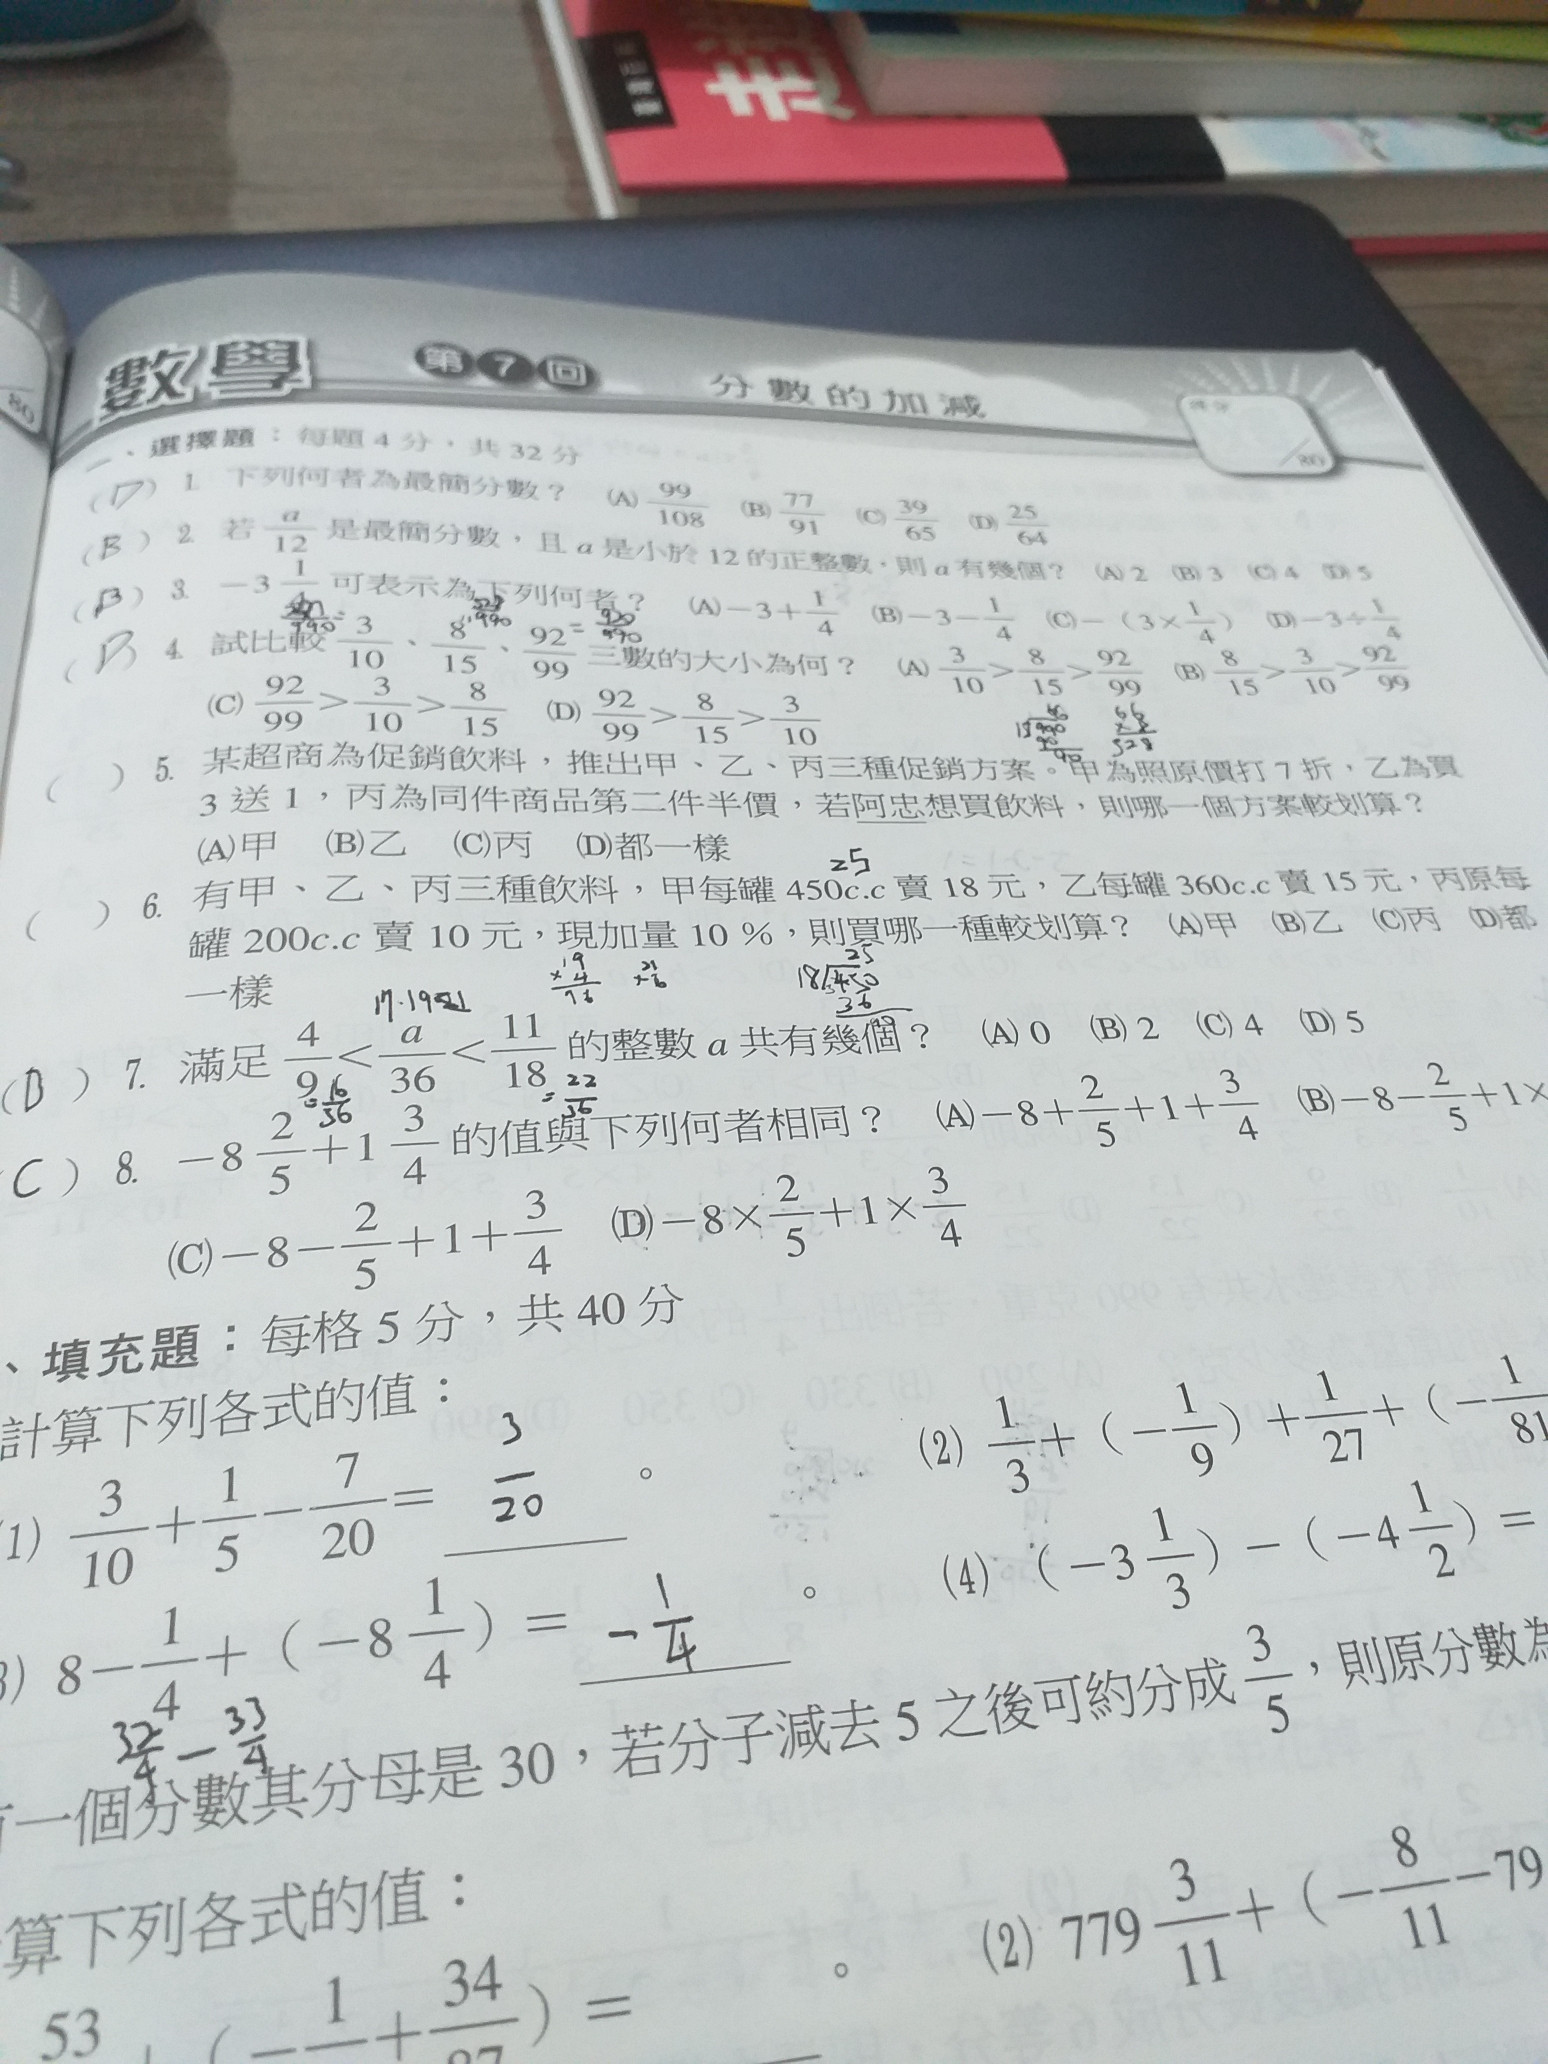 80
數學 第7回 分數的加減 得分 /80
一、選擇題：每題4分，共32分
(D) 1. 下列何者為最簡分數？ (A) 99/108 (B) 77/91 (C) 39/65 (D) 25/64
(B) 2. 若 a/12 是最簡分數，且 a 是小於 12 的正整數，則 a 有幾個？ (A) 2 (B) 3 (C) 4 (D) 5
(B) 3. －3 1/4 可表示為下列何者？ (A)－3＋1/4 (B)－3－1/4 (C)－（3×1/4） (D)－3÷1/4
(D) 4. 試比較 3/10、8/15、92/99 三數的大小為何？ (A) 3/10＞8/15＞92/99 (B) 8/15＞3/10＞92/99
= 920/990
(C) 92/99＞3/10＞8/15 (D) 92/99＞8/15＞3/10
66 ×8 528
( ) 5. 某超商為促銷飲料，推出甲、乙、丙三種促銷方案。甲為照原價打 7 折，乙為買
3 送 1，丙為同件商品第二件半價，若阿忠想買飲料，則哪一個方案較划算？
(A)甲 (B)乙 (C)丙 (D)都一樣
25
( ) 6. 有甲、乙、丙三種飲料，甲每罐 450c.c 賣 18 元，乙每罐 360c.c 賣 15 元，丙原每
罐 200c.c 賣 10 元，現加量 10 %，則買哪一種較划算？ (A)甲 (B)乙 (C)丙 (D)都
一樣
19 ×4 76
25 18 450 36 90
17.19
(B) 7. 滿足 4/9＜a/36＜11/18 的整數 a 共有幾個？ (A) 0 (B) 2 (C) 4 (D) 5
=16/36 =22/36
(C) 8. －8 2/5＋1 3/4 的值與下列何者相同？ (A)－8＋2/5＋1＋3/4 (B)－8－2/5＋1×
(C)－8－2/5＋1＋3/4 (D)－8×2/5＋1×3/4
、填充題：每格 5 分，共 40 分
計算下列各式的值：
(1) 3/10＋1/5－7/20＝ 3/20 。 (2) 1/3＋（－1/9）＋1/27＋（－1/81
3) 8－1/4＋（－8 1/4）＝ －1/4 。 (4)（－3 1/3）－（－4 1/2）＝
32/4 － 33/4
有一個分數其分母是 30，若分子減去 5 之後可約分成 3/5，則原分數為
算下列各式的值：
53 ＋（－1 ＋34/87）＝ 。 (2) 779 3/11＋（－8/11－79